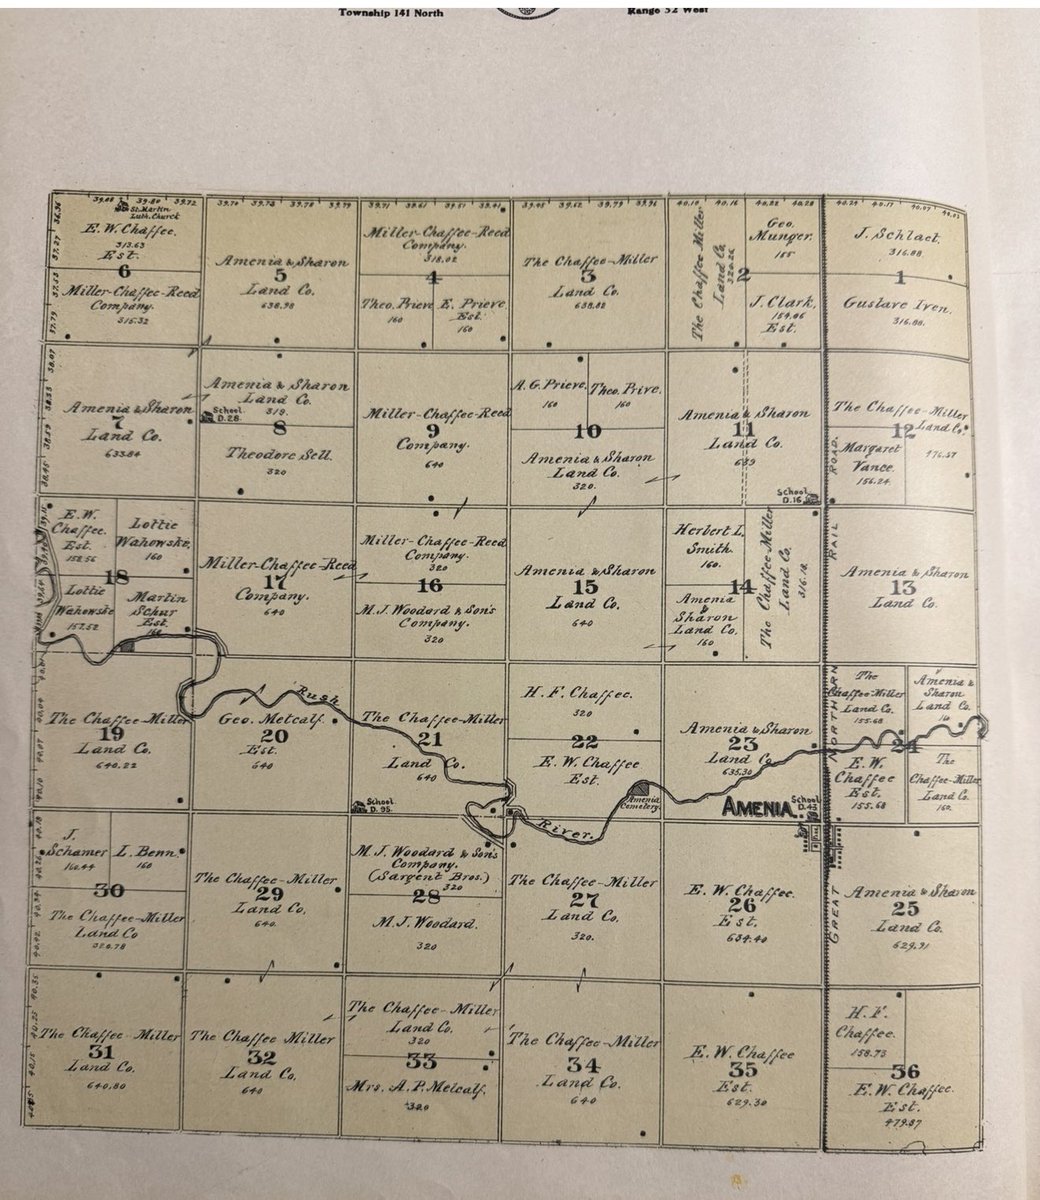 Township 141 North
Range 52 West
39.72
St. Martin
Luth. Church
E. W. Chaffee.
313.63
Est.
6
Miller-Chaffee-Reed
Company.
315.32
39.70 39.78 39.79
Amenia & Sharon
5
Land Co.
638.98
39.71 39.61 39.51 39.41
Miller-Chaffee-Reed
Company.
318.02
4
Theo. Prieve
160
E. Prieve
Est.
160
The Chaffee-Miller
3
Land Co.
638.82
40.10 40.16 40.22 40.28
The Chaffee-Miller
Land Co.
320.26
2
Geo.
Munger.
155
J. Clark,
154.06
Est.
40.24 40.17
J. Schlact.
316.88
1
Gustave Iven.
316.88.
Amenia & Sharon
7
Land Co.
633.84
Amenia & Sharon
Land Co.
319.
School
D.28
8
Theodore Sell.
320
Miller-Chaffee-Reed
9
Company.
640
A. G. Prieve.
160
Theo. Prive.
160
10
Amenia & Sharon
Land Co.
320.
Amenia & Sharon
11
Land Co.
639
School
D.16
The Chaffee-Miller
Land Co.
12
Margaret
Vance.
156.24.
476.57
E. W.
Chaffee.
Est.
158.56
Lottie
Wahowske.
160
18
Lottie
Wahowske
157.52
Martin
Schur
Est.
160
Miller-Chaffee-Reed
17
Company.
640
Miller-Chaffee-Reed
Company.
320
16
M. J. Woodard & Son's
Company.
320
Amenia & Sharon
15
Land Co.
640
Herbert L.
Smith.
160.
14
Amenia
&
Sharon
Land Co.
160
The Chaffee-Miller
Land Co.
316.18
Amenia & Sharon
13
Land Co.
The Chaffee-Miller
19
Land Co.
640.22
Geo. Metcalf.
20
Est.
640
Rush
The Chaffee-Miller
21
Land Co.
640
School
D.95
H. F. Chaffee.
320
22
E. W. Chaffee
Est.
Amenia
Cemetery.
Amenia & Sharon
23
Land Co.
635.30
AMENIA.
School
D.45
The
Chaffee-Miller
Land Co.
155.68
Amenia &
Sharon
Land Co.
24
E. W.
Chaffee
Est.
155.68
The
Chaffee-Miller
Land Co.
160.
River.
J.
Schamer
160.44
L. Benn.
160
30
The Chaffee-Miller
Land Co
320.78
The Chaffee-Miller
29
Land Co.
640.
M. J. Woodard & Son's
Company.
(Sargent Bros.)
320
28
M. J. Woodard.
320
The Chaffee-Miller
27
Land Co.
320.
E. W. Chaffee.
26
Est.
634.40
Amenia & Sharon
25
Land Co.
629.91
GREAT NORTHERN RAIL ROAD.
The Chaffee-Miller
31
Land Co.
640.80
The Chaffee Miller
32
Land Co.
640
The Chaffee-Miller
Land Co.
320
33
Mrs. A. P. Metcalf.
320
The Chaffee-Miller
34
Land Co.
640
E. W. Chaffee
35
Est.
629.30
H. F.
Chaffee.
158.73
36
E. W. Chaffee.
Est.
479.87